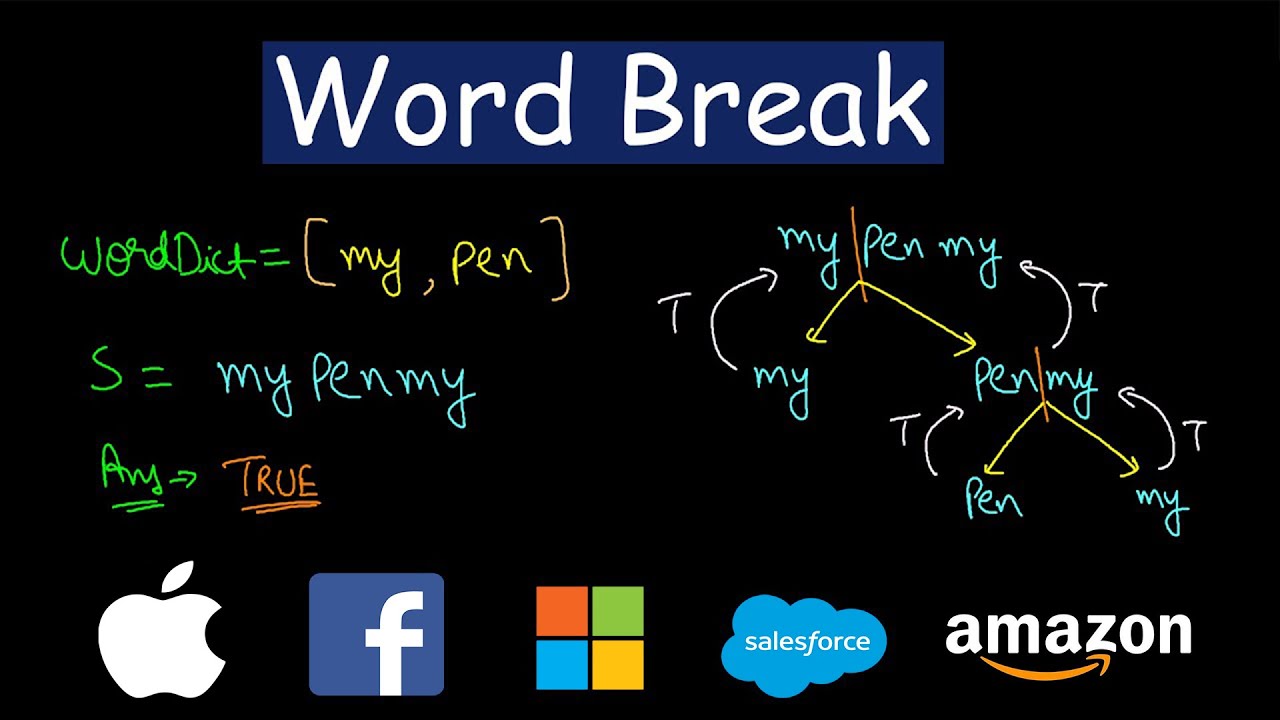 Word Break
WordDict = [ my , pen ]
S = mypenmy
Ans → TRUE
my | pen my
T
T
my
pen | my
T
T
pen
my
f
salesforce
amazon